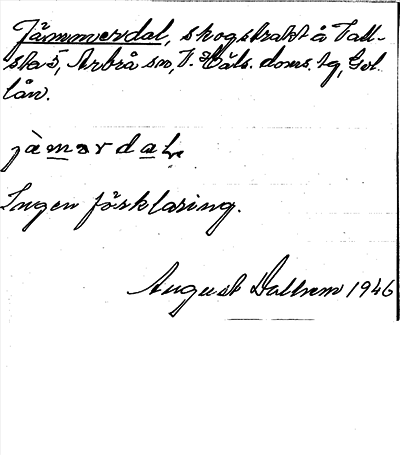 Jämmerdal, skogstrakt å Vall-
sta 5, Arbrå sn, V. Häls. doms. tg, Gvl.
län.
jàmərdal,
Ingen förklaring.
August Dallrem 1946